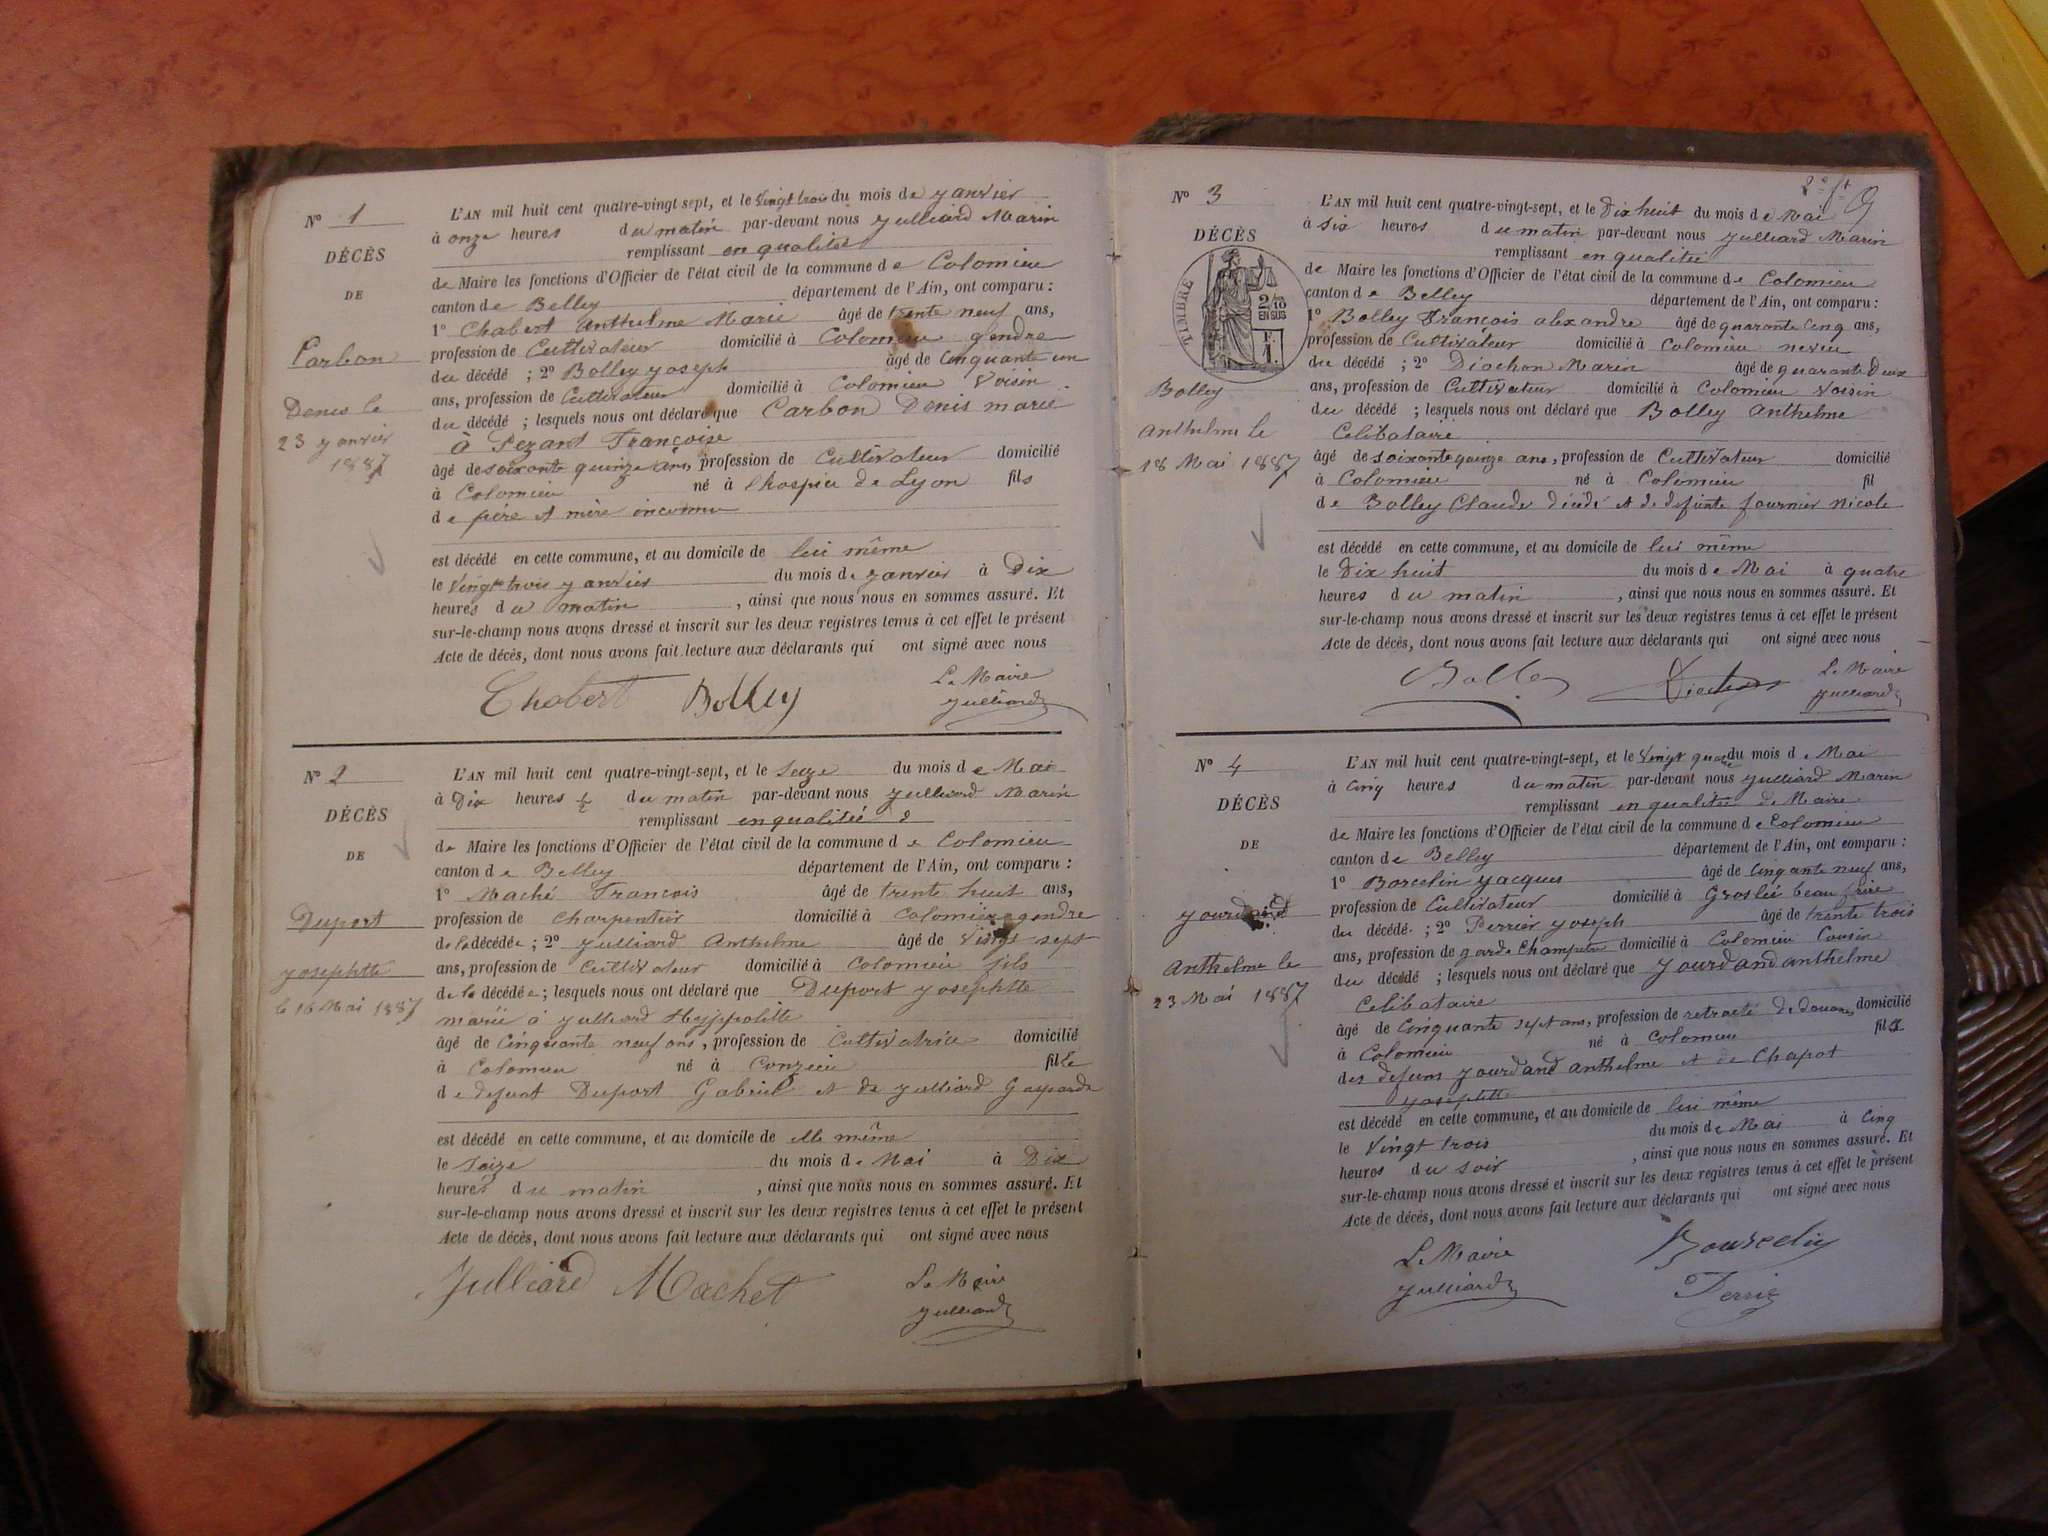 N° 1
DÉCÈS
DE
Carbon
Denis le
23 Janvier
1887
L'AN mil huit cent quatre-vingt sept, et le vingt trois du mois de Janvier
à onze heures du matin par-devant nous Julliard Marin
remplissant en qualitée
de Maire les fonctions d'Officier de l'état civil de la commune de Colomieu
canton de Belley département de l'Ain, ont comparu :
1° Chabert Anthelme Marie âgé de trente neuf ans,
profession de Cultivateur domicilié à Colomieu gendre
du décédé ; 2° Bolley Joseph âgé de Cinquante un
ans, profession de Cultivateur domicilié à Colomieu Voisin
du décédé ; lesquels nous ont déclaré que Carbon Denis marie
à Pezant Françoise
âgé de soixante quinze ans, profession de Cultivateur domicilié
à Colomieu né à L'hospice de Lyon fils
de père et mère inconnu
est décédé en cette commune, et au domicile de lui même
le Vingt trois Janvier du mois de Janvier à Dix
heures du matin, ainsi que nous nous en sommes assuré. Et
sur-le-champ nous avons dressé et inscrit sur les deux registres tenus à cet effet le présent
Acte de décès, dont nous avons fait lecture aux déclarants qui ont signé avec nous
Chabert Bolley Le Maire
Julliard
N° 2
DÉCÈS
DE
Duport
Josephtte
le 16 Mai 1887
L'AN mil huit cent quatre-vingt-sept, et le Seize du mois de Mai
à Dix heures ½ du matin par-devant nous Julliard Marin
remplissant en qualitéé d
de Maire les fonctions d'Officier de l'état civil de la commune de Colomieu
canton de Belley département de l'Ain, ont comparu :
1° Maché Francois âgé de trente huit ans,
profession de Charpentier domicilié à Colomieu gendre
de la décédée ; 2° Julliard Anthelme âgé de Vingt sept
ans, profession de Cultivateur domicilié à Colomieu fils
de la décédée ; lesquels nous ont déclaré que Duport Josephtte
mariée à Julliard Hyppolitte
âgé de Cinquante neuf ans, profession de Cultivatrice domicilié
à Colomieu né à Conzieu fille
de defunt Duport Gabriel et de Julliard Gasparde
est décédé en cette commune, et au domicile de elle même
le Seize du mois de Mai à Dix
heures du matin, ainsi que nous nous en sommes assuré. Et
sur-le-champ nous avons dressé et inscrit sur les deux registres tenus à cet effet le présent
Acte de décès, dont nous avons fait lecture aux déclarants qui ont signé avec nous
Julliard Machet Le Maire
Julliard
N° 3
DÉCÈS
TIMBRE
2/10
EN SUS
Bolley
Anthelme le
18 Mai 1887
L'AN mil huit cent quatre-vingt-sept, et le Dix huit du mois de Mai
à six heures du matin par-devant nous Julliard Marin
remplissant en qualitée
de Maire les fonctions d'Officier de l'état civil de la commune de Colomieu
canton de Belley département de l'Ain, ont comparu :
1° Bolley François alexandre âgé de quarante Cinq ans,
profession de Cultivateur domicilié à Colomieu neveu
du décédé ; 2° Diochon Marin âgé de quarante Deux
ans, profession de Cultivateur domicilié à Colomieu voisin
du décédé ; lesquels nous ont déclaré que Bolley Anthelme
Celibataire
âgé de soixante quinze ans, profession de Cultivateur domicilié
à Colomieu né à Colomieu fil
de Bolley Claude et de defunte fournier nicole
est décédé en cette commune, et au domicile de lui même
le Dix huit du mois de Mai à quatre
heures du matin, ainsi que nous nous en sommes assuré. Et
sur-le-champ nous avons dressé et inscrit sur les deux registres tenus à cet effet le présent
Acte de décès, dont nous avons fait lecture aux déclarants qui ont signé avec nous
Bolley Diochon Le Maire
Julliard
N° 4
DÉCÈS
DE
Jourdand
Anthelme le
23 Mai 1887
L'AN mil huit cent quatre-vingt-sept, et le Vingt quatre du mois de Mai
à Cinq heures du matin par-devant nous Julliard Marin
remplissant en qualitée de Maire
de Maire les fonctions d'Officier de l'état civil de la commune de Colomieu
canton de Belley département de l'Ain, ont comparu :
1° Borcelin Jacques âgé de Cinqante neuf ans,
profession de Cultivateur domicilié à Groslée beau frère
du décédé ; 2° Perrier Joseph âgé de trente trois
ans, profession de garde Champetre domicilié à Colomieu Cousin
du décédé ; lesquels nous ont déclaré que Jourdand anthelme
Celibataire
âgé de Cinquante sept ans, profession de retraité de douanes domicilié
à Colomieu né à Colomieu fils
des defuns Jourdand anthelme et de Chapot
Josephtte
est décédé en cette commune, et au domicile de lui même
le Vingt trois du mois de Mai à Cinq
heures du soir, ainsi que nous nous en sommes assuré. Et
sur-le-champ nous avons dressé et inscrit sur les deux registres tenus à cet effet le présent
Acte de décès, dont nous avons fait lecture aux déclarants qui ont signé avec nous
Le Maire Bourcelin
Julliard